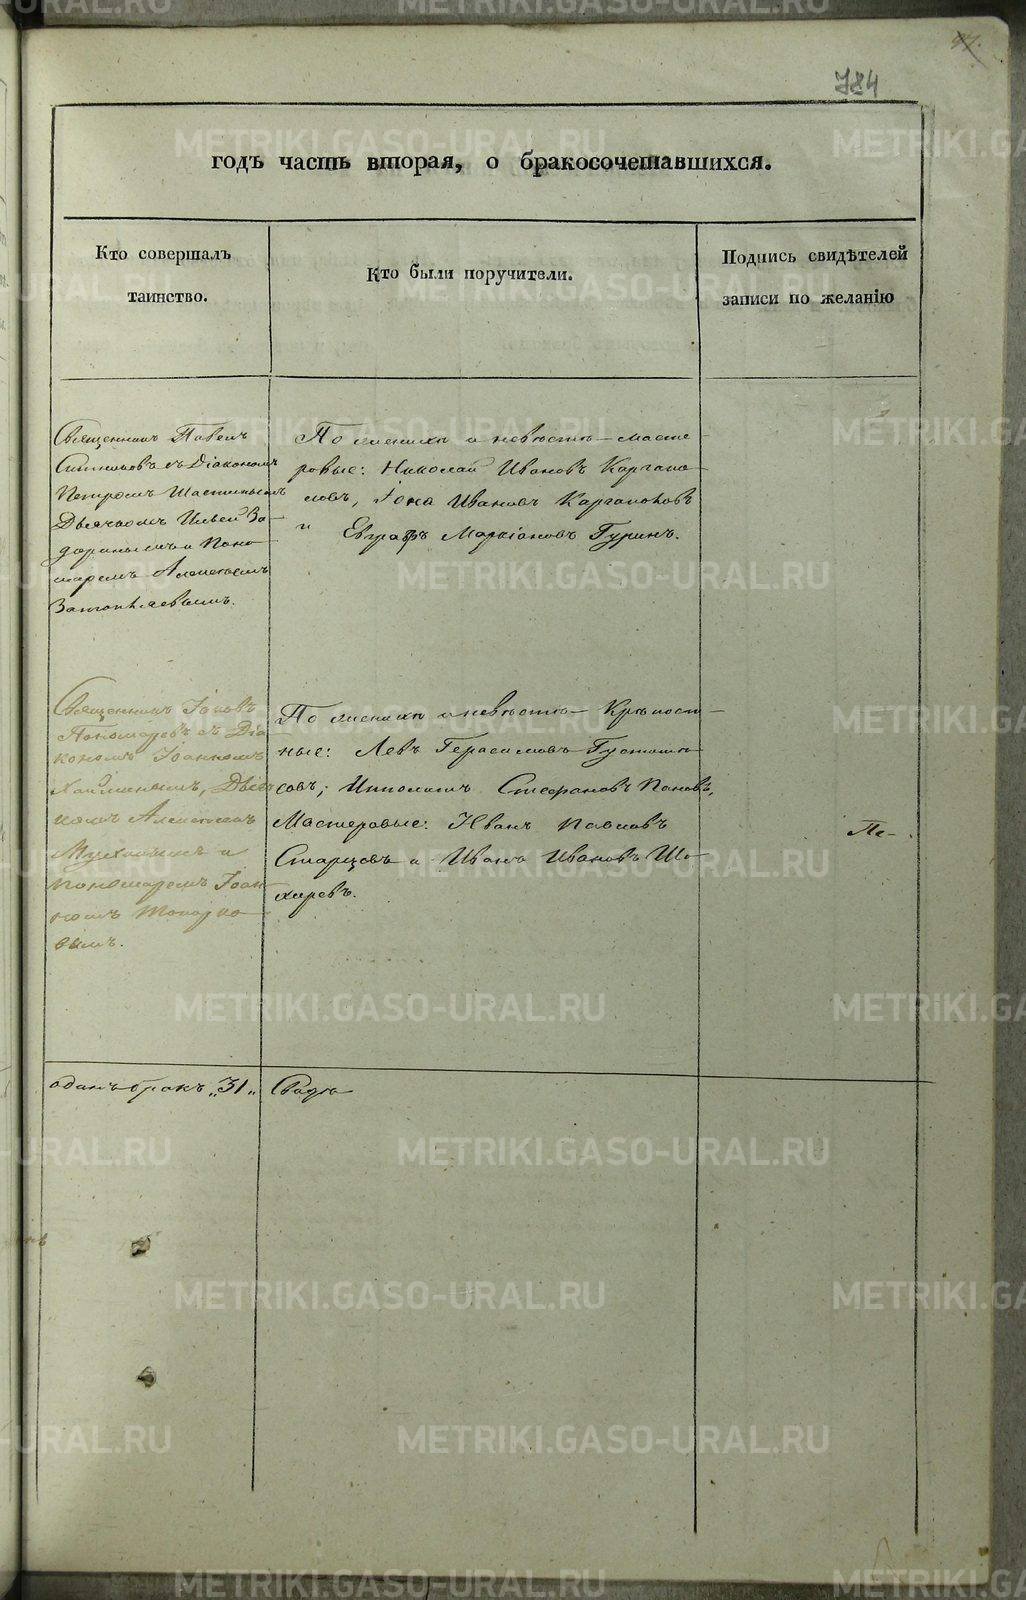 97.
784
годъ часть вторая, о бракосочетавшихся.
Кто совершалъ
таинство.
Кто были поручители.
Подпись свидѣтелей
записи по желанію
Священникъ Павелъ
съ Діакономъ
Петромъ
Дьячкомъ Ильей За-
и Поно-
маремъ Алексѣемъ
По женихѣ и невѣстѣ – масте-
ровые: Николай Ивановъ Каргапо-
ловъ, Іона Ивановъ Каргаполовъ
и Евграфъ Маркіановъ Гуринъ.
Священникъ Іаковъ
Пономаревъ съ Діа
кономъ Іоанномъ
Дьяч
комъ Алексѣемъ
и
пономаремъ Іоан
номъ Топорко
вымъ.
По женихѣ и невѣстѣ – Крѣпост-
ные: Левъ Герасимовъ
совъ; Ипполитъ Стефановъ Поповъ,
Мастеровые: Иванъ Павловъ
Старцовъ и Иванъ Ивановъ
хиревъ.
Пе-
одинъ бракъ „31„ Свадьба
METRIKI.GASO-URAL.RU